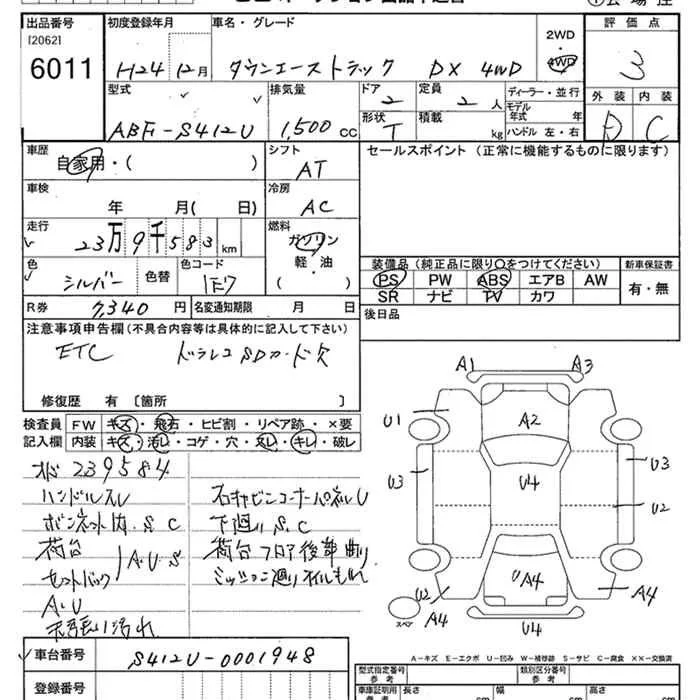 出品番号 初度登録年月 車名・グレード 2WD・4WD 評価点
[2062]
6011 H24年12月 タウンエーストラック DX 4WD 3
型式 排気量 ドア 定員 ディーラー・並行 外装 内装
2 2人 モデル年式 年
ABF-S412U 1,500cc 形状 T 積載 kg ハンドル 左・右 D C
車歴 シフト セールスポイント (正常に機能するものに限ります)
自家用・( ) AT
車検 冷房
年 月( 日) AC
走行 燃料
23万9千583km ガソリン
軽・油
色 色替 色コード ( )
シルバー 1E7
装備品 (純正品に限り○をつけてください) 新車保証書
PS PW ABS エアB AW 有・無
SR ナビ TV カワ
R券 7,340円 名変通知期限 月 日
後日品
注意事項申告欄(不具合内容等は具体的に記入して下さい)
ETC ドラレコSDカード欠
修復歴 有 [箇所
検査員 FW キズ・飛石・ヒビ割・リペア跡・×要
記入欄 内装 キズ・汚レ・コゲ・穴・スレ・キレ・破レ
239584
ハンドルスレ 右キャビンコーナーパネルU
ボンネット内 S.C 下廻りS.C
荷台 A.U.S 荷台フロア後部曲り
セットバック ミッション廻りオイルもれ
A.U
汚れ
A1 A3
U1 A2
U3 U4 U3
U2
U2 UA4 A4
A4
スペア U4
A-キズ E-エクボ U-凹み W-補修跡 S-サビ C-腐食 ××-交換済
車台番号 S412U-0001948
登録番号
型式指定番号 参考 類別区分番号 参考
車庫証明用 参考 長さ cm 幅 cm 高さ cm